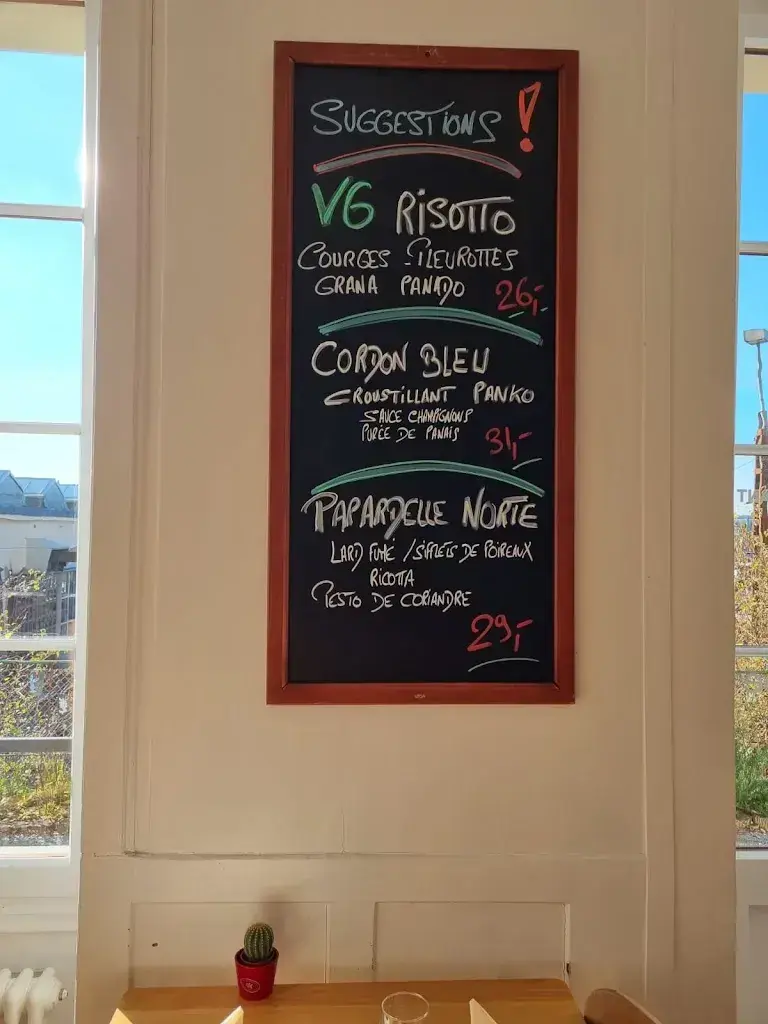 SUGGESTIONS !
VG RISOTTO
COURGES - PLEUROTTES
GRANA PANADO 26,-
CORDON BLEU
CROUSTILLANT PANKO
SAUCE CHAMPIGNONS
PURÉE DE PANAIS 31,-
PAPARDELLE NORTE
LARD FUMÉ / SIFFLETS DE POIREAUX
RICOTTA
PESTO DE CORIANDRE
29,-